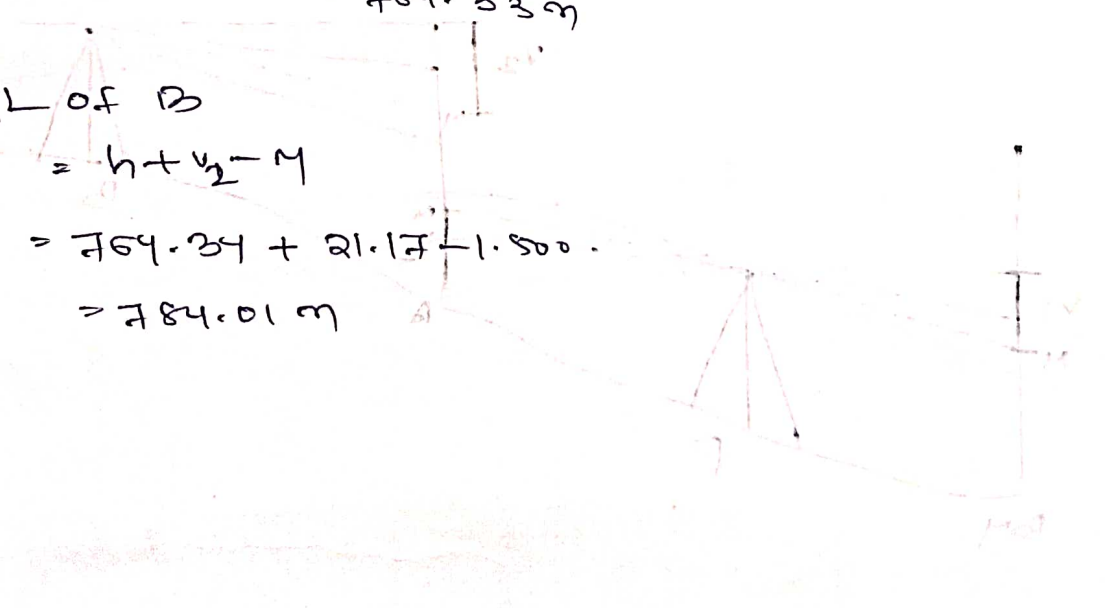 L of B
= h + v2 - r
= 764.34 + 21.17 - 1.500.
= 784.01 m
A